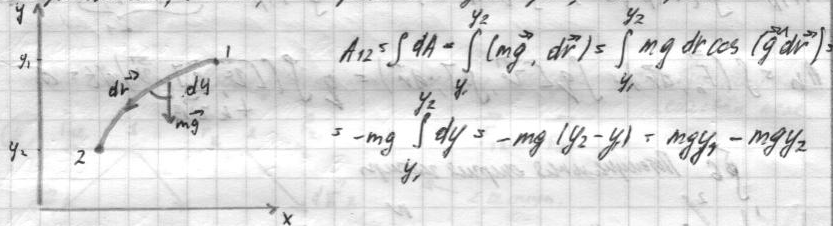 y
y₁
y₂
1
dr⃗
dy
mg⃗
2
x
A₁₂ = ∫ dA = ∫_{y₁}^{y₂} (mg⃗, dr⃗) = ∫_{y₁}^{y₂} mg dr cos (g⃗^dr⃗) =
= -mg ∫_{y₁}^{y₂} dy = -mg (y₂-y₁) = mgy₁ - mgy₂